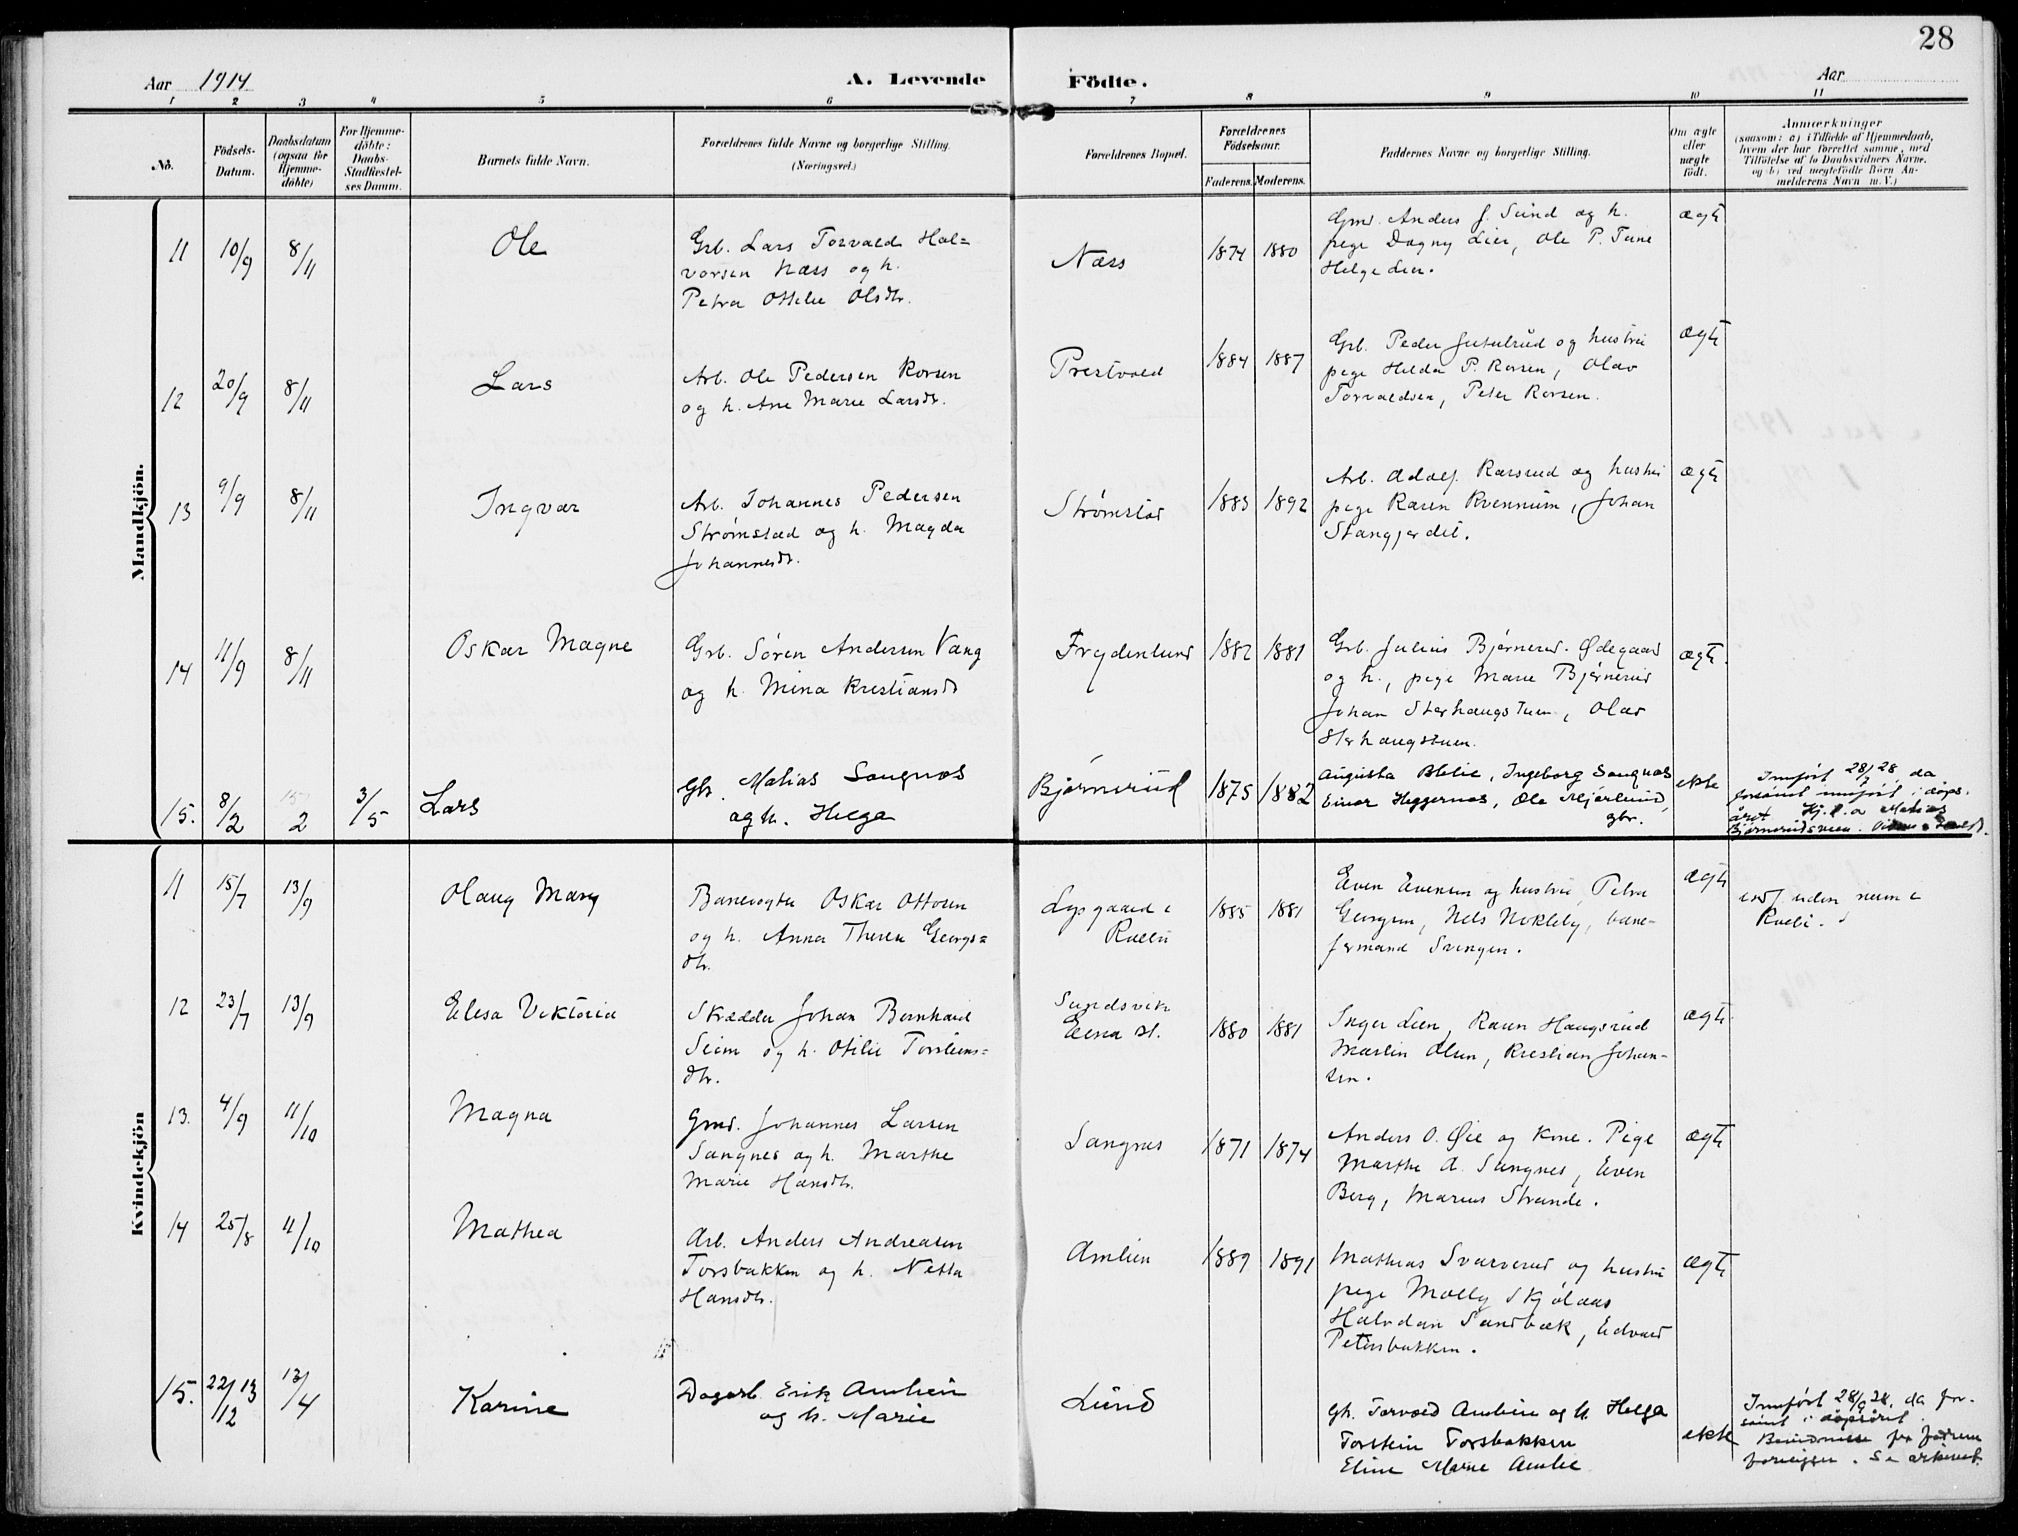 28
Aar 1914
A. Levende Födte.
Aar
1 2 3 4 5 6 7 8 9 10 11
No.
Födsels-
Datum.
Daabsdatum
(ogsaa for
Hjemme-
döbte)
For Hjemme-
döbte:
Daabs-
Stadfæstel-
ses Datum.
Barnets fulde Navn.
Forældrenes fulde Navne og borgerlige Stilling.
(Næringsvei.)
Forældrenes Bopæl.
Forældrenes
Födselsaar.
Faderens. Moderens.
Faddernes Navne og borgerlige Stilling.
Om ægte
eller
uægte
födt.
Anmærkninger
(saasom: a) i Tilfælde af Hjemmedaab,
hvem der har forrettet samme, med
Tilföielse af to Daabsvidners Navne.
og b) ved uægtefödte Börn An-
melderens Navn m. V.)
Mandkjön.
11 10/9 8/11 Ole
Grb. Lars Torvald Hal=
vorsen Næss og h.
Petra Otteliе Olsdtr.
Næss 1874 1880
Gmd. Anders J. Sund og h.
pige Dagny Lier, Ole P. Tune
Helge Lier.
ægte
12 20/9 8/11 Lars
Arb. Ole Pedersen Korsen
og h. Ane Marie Larsdtr.
Prestvold 1884 1887
Grb. Peder Jutulrud og hustru
pige Helda P. Korsen, Olav
Torvaldsen, Peter Korsen.
ægte
13 9/9 8/11 Ingvar
Arb. Johannes Pedersen
Strømstad og h. Magda
Johannesdtr.
Strømstad 1883 1892
Arb. Adolf Karsrud og hustru
pige Karen Kvennum, Johan
Stangjerdet.
ægte
14 11/9 8/11 Oskar Magne
Grb. Søren Andersen Vang
og h. Mina Kristiansdtr
Frydenlund 1882 1881
Grb. Julius Bjørnerud-Ødegaard
og h., pige Marie Bjørnerud
Johan Sterhaugstuen, Olav
Sterhaugstuen.
ægte.
15. 8/2 15/2 3/5 Lars
Gbr. Matias Sangnæs
og h. Helga
Bjørnerud 1875 1882
Augusta Blilie, Ingeborg Sangnæs
Einar Heggernæs, Ole Mjørlund,
gbr.
ekte
Innført 28/9 28, da
forsømt innført i dåps-
året. Hj.d. a Matias
Bjørnerudsveen.
Kvindekjön
11 15/7 13/9 Olaug Mary
Banevogter Oskar Ottosen
og h. Anna Therese Georgs=
dtr.
Lysgaard i
Kolbu
1885 1881
Even Evensen og hustru, Petra
Georgsen, Nels Nøkleby, bane-
formand Svingen.
ægte
indf. uden num i
Kolbu.
12 23/7 13/9 Elisa Viktoria
Skrædder Johan Bernhard
Seim og h. Otilie Torstens=
dtr.
Sundsvik
Eina st.
1880 1881
Inger Lien, Karen Haugsrud
Martin Olsen, Kristian Johan-
sen.
ægte
13. 4/9 11/10 Magna
Gmd. Johannes Larsen
Sangnes og h. Marthe
Marie Hansdtr.
Sangnes 1871 1874
Anders O. Øie og kone. Pige
Marthe A. Sangnes, Even
Berg, Marius Strande.
ægte
14 25/8 11/10 Mathea
Arb. Anders Andreasen
Torsbakken og h. Netta
Hansdtr.
Amlien 1889 1891
Mathias Svarverud og hustru
pige Molly Skjølaas
Halvdan Sandbæk, Edvard
Petersbakken.
ægte
15. 22/12 13 13/4 Karine
Dagarb. Erik Amlien
og h. Marie
Lund
Gbr. Torvald Amlien og h. Helga
Torstein Torsbakken
Eline Marie Amlie
ekte
Innført 28/9 28, da for-
sømt i dåpsåret.
fra fadrene
foreligger. Se arkivet.